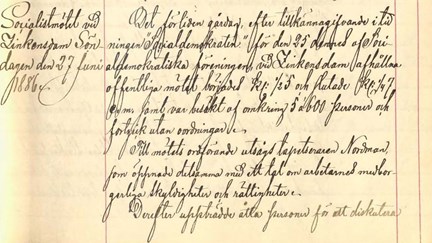 Socialistmötet vid
Zinkensdam Sön-
dagen den 27 Juni
1886.
Det förliden gårdag, efter tillkännagifvande i tid
ningen "Socialdemokraten" för den 25 dennes af Soci-
aldemokratiska föreningen, vid Zinkensdam afhållna
offentliga mötet började kl. 1/25 och slutade kl. 1/47
e.m. samt var besökt af omkring 5 à 600 personer och
förgick utan oordningar.
Till mötets ordförande utsågs tapetseraren Nordman,
som öppnade detsamma med ett tal om arbetarnes medbor-
gerliga skyldigheter och rättigheter.
Derefter uppträdde åtta personer för att diskutera